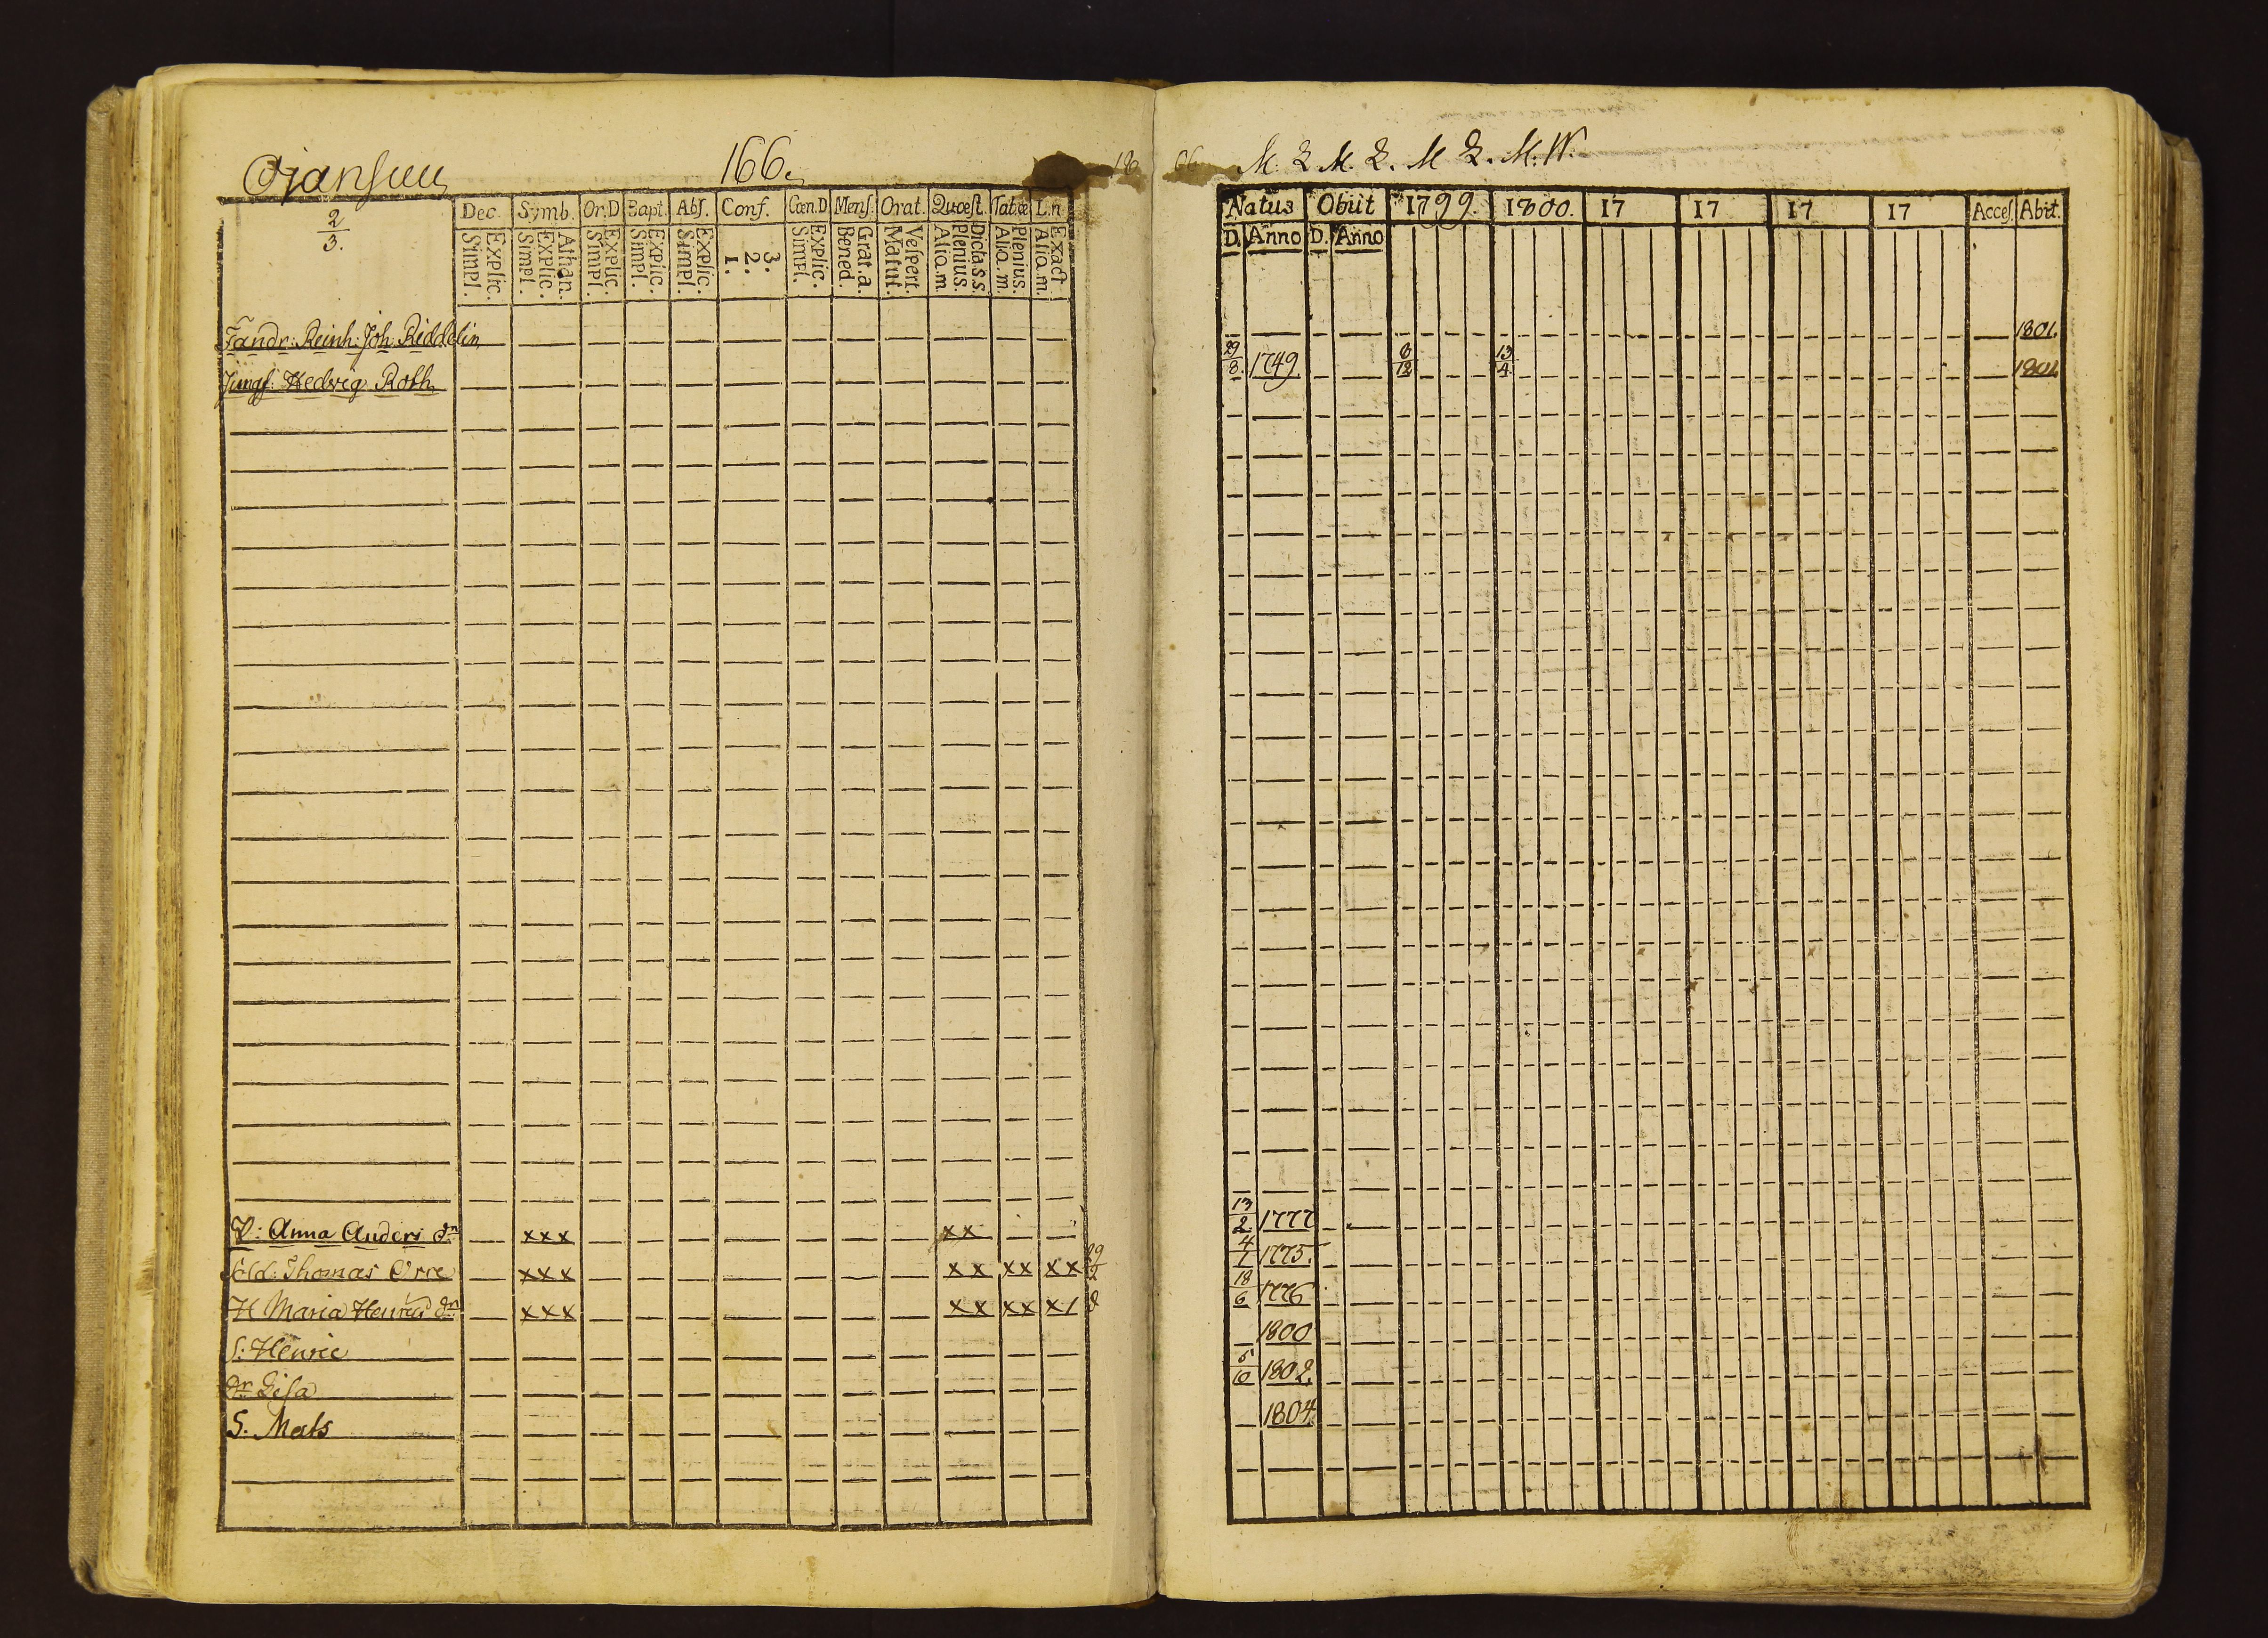 Ojansuu 166.
2/3.
Dec. Symb. Or.D Bapt. Abs. Conf. Cœn.D Mens. Orat. Quæst. Tabæ L.n
Explic. Simpl. Athan. Explic. Simpl. Explic. Simpl. Explic. Simpl. Explic. Simpl. 3. 2. 1. Explic. Simpl. Grat.a. Bened. Vespert. Matut. Dicta.s.s. Plenius. Aliq.m. Plenius. Aliq.m. Exact Aliq.m.
Fändr: Reinh: Joh: Riddelin
Jungf: Hedvig Roth
V: Anna Anders dr xxx xx
Sold: Thomas Orre xxx xx xx xx 29/2
H Maria Henrics dr xxx xx xx x/
S: Henric
dr Lisa
S. Mats
M. L M. L. M L. M. W.
Natus Obiit 1799. 1800. 17 17 17 17 Acces. Abit.
D. Anno D. Anno
1801.
29/8. 1749 8/12 13/4 1801.
13/2 1777
4/1 1775.
18/6 1776
1800
5/10 1802.
1804